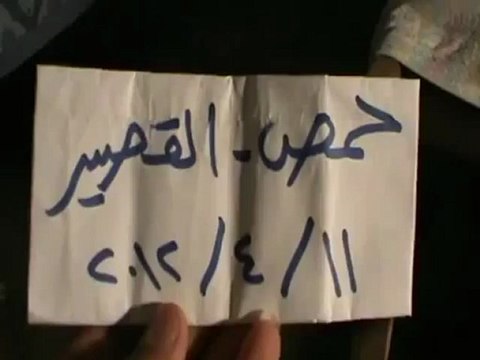 حمص - القصير
١١ / ٤ / ٢٠١٢